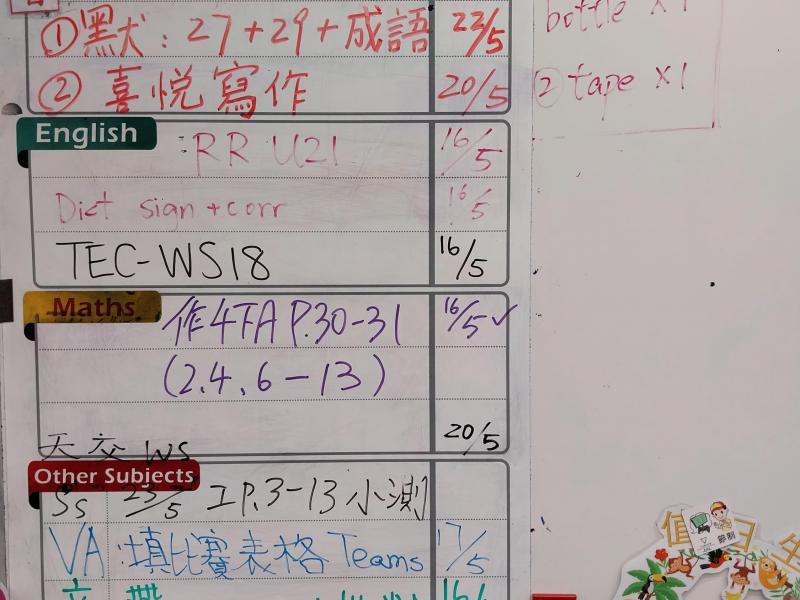 ①默：27+29+成語 22/5
②喜悅寫作 20/5
bottle x1
② tape x1
English
RR U21 16/5
Dict sign + corr 16/5
TEC-WS18 16/5
Maths
作4下A P.30-31 16/5 ✓
(2,4,6-13)
WS 20/5
Other Subjects
SS 23/5 工P.3-13小測
VA 填比賽表格 Teams 17/5
值日生